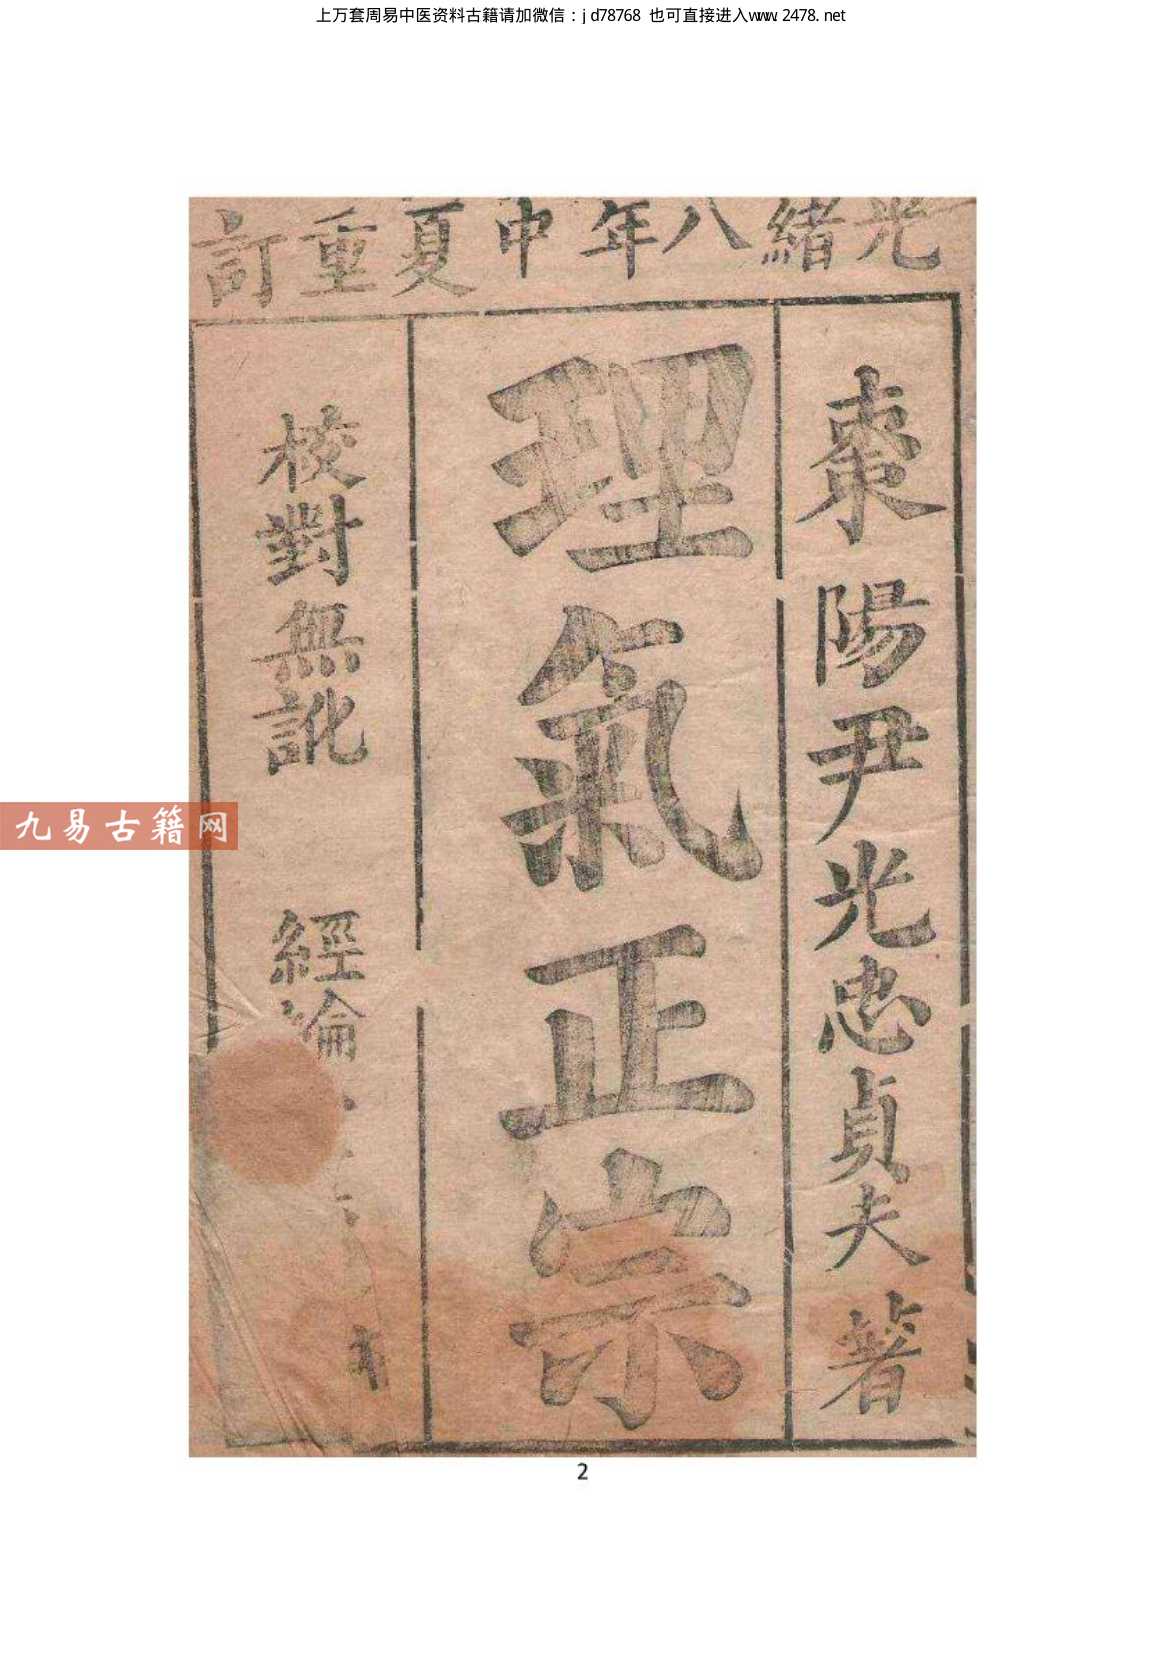 上万套周易中医资料古籍请加微信：jd78768 也可直接进入www.2478.net
光緒八年中夏重訂
棗陽尹光忠貞夫著
理氣正宗
校對無訛
經綸
九易古籍网
2